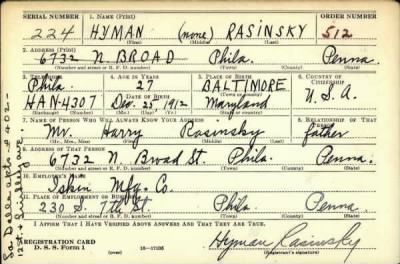 SERIAL NUMBER 1. NAME (Print) ORDER NUMBER
224 HYMAN (none) RASINSKY 512
(First) (Middle) (Last)
2. ADDRESS (Print)
6732 N. BROAD Phila. Penna.
(Number and street or R. F. D. number) (Town) (County) (State)
3. TELEPHONE 4. AGE IN YEARS 5. PLACE OF BIRTH 6. COUNTRY OF CITIZENSHIP
Phila. 27 BALTIMORE
DATE OF BIRTH (Town or county)
HAN-4307 Dec. 25, 1912 Maryland U.S.A.
(Exchange) (No.) (Mo.) (Day) (Yr.) (State or country)
7. NAME OF PERSON WHO WILL ALWAYS KNOW YOUR ADDRESS 8. RELATIONSHIP OF THAT PERSON
Mr. Harry Rasinsky father
(Mr., Mrs., Miss) (First) (Middle) (Last)
9. ADDRESS OF THAT PERSON
6732 N. Broad St. Phila. Penna.
(Number and street or R. F. D. number) (Town) (County) (State)
10. EMPLOYER'S NAME
Mfg. Co.
11. PLACE OF EMPLOYMENT OR BUSINESS
230 S. 7th St. Phila. Penna.
(Number and street or R. F. D. number) (Town) (County) (State)
I AFFIRM THAT I HAVE VERIFIED ABOVE ANSWERS AND THAT THEY ARE TRUE.
REGISTRATION CARD
D. S. S. Form 1 (over) 16-17105 Hyman Rasinsky
(Registrant's signature)